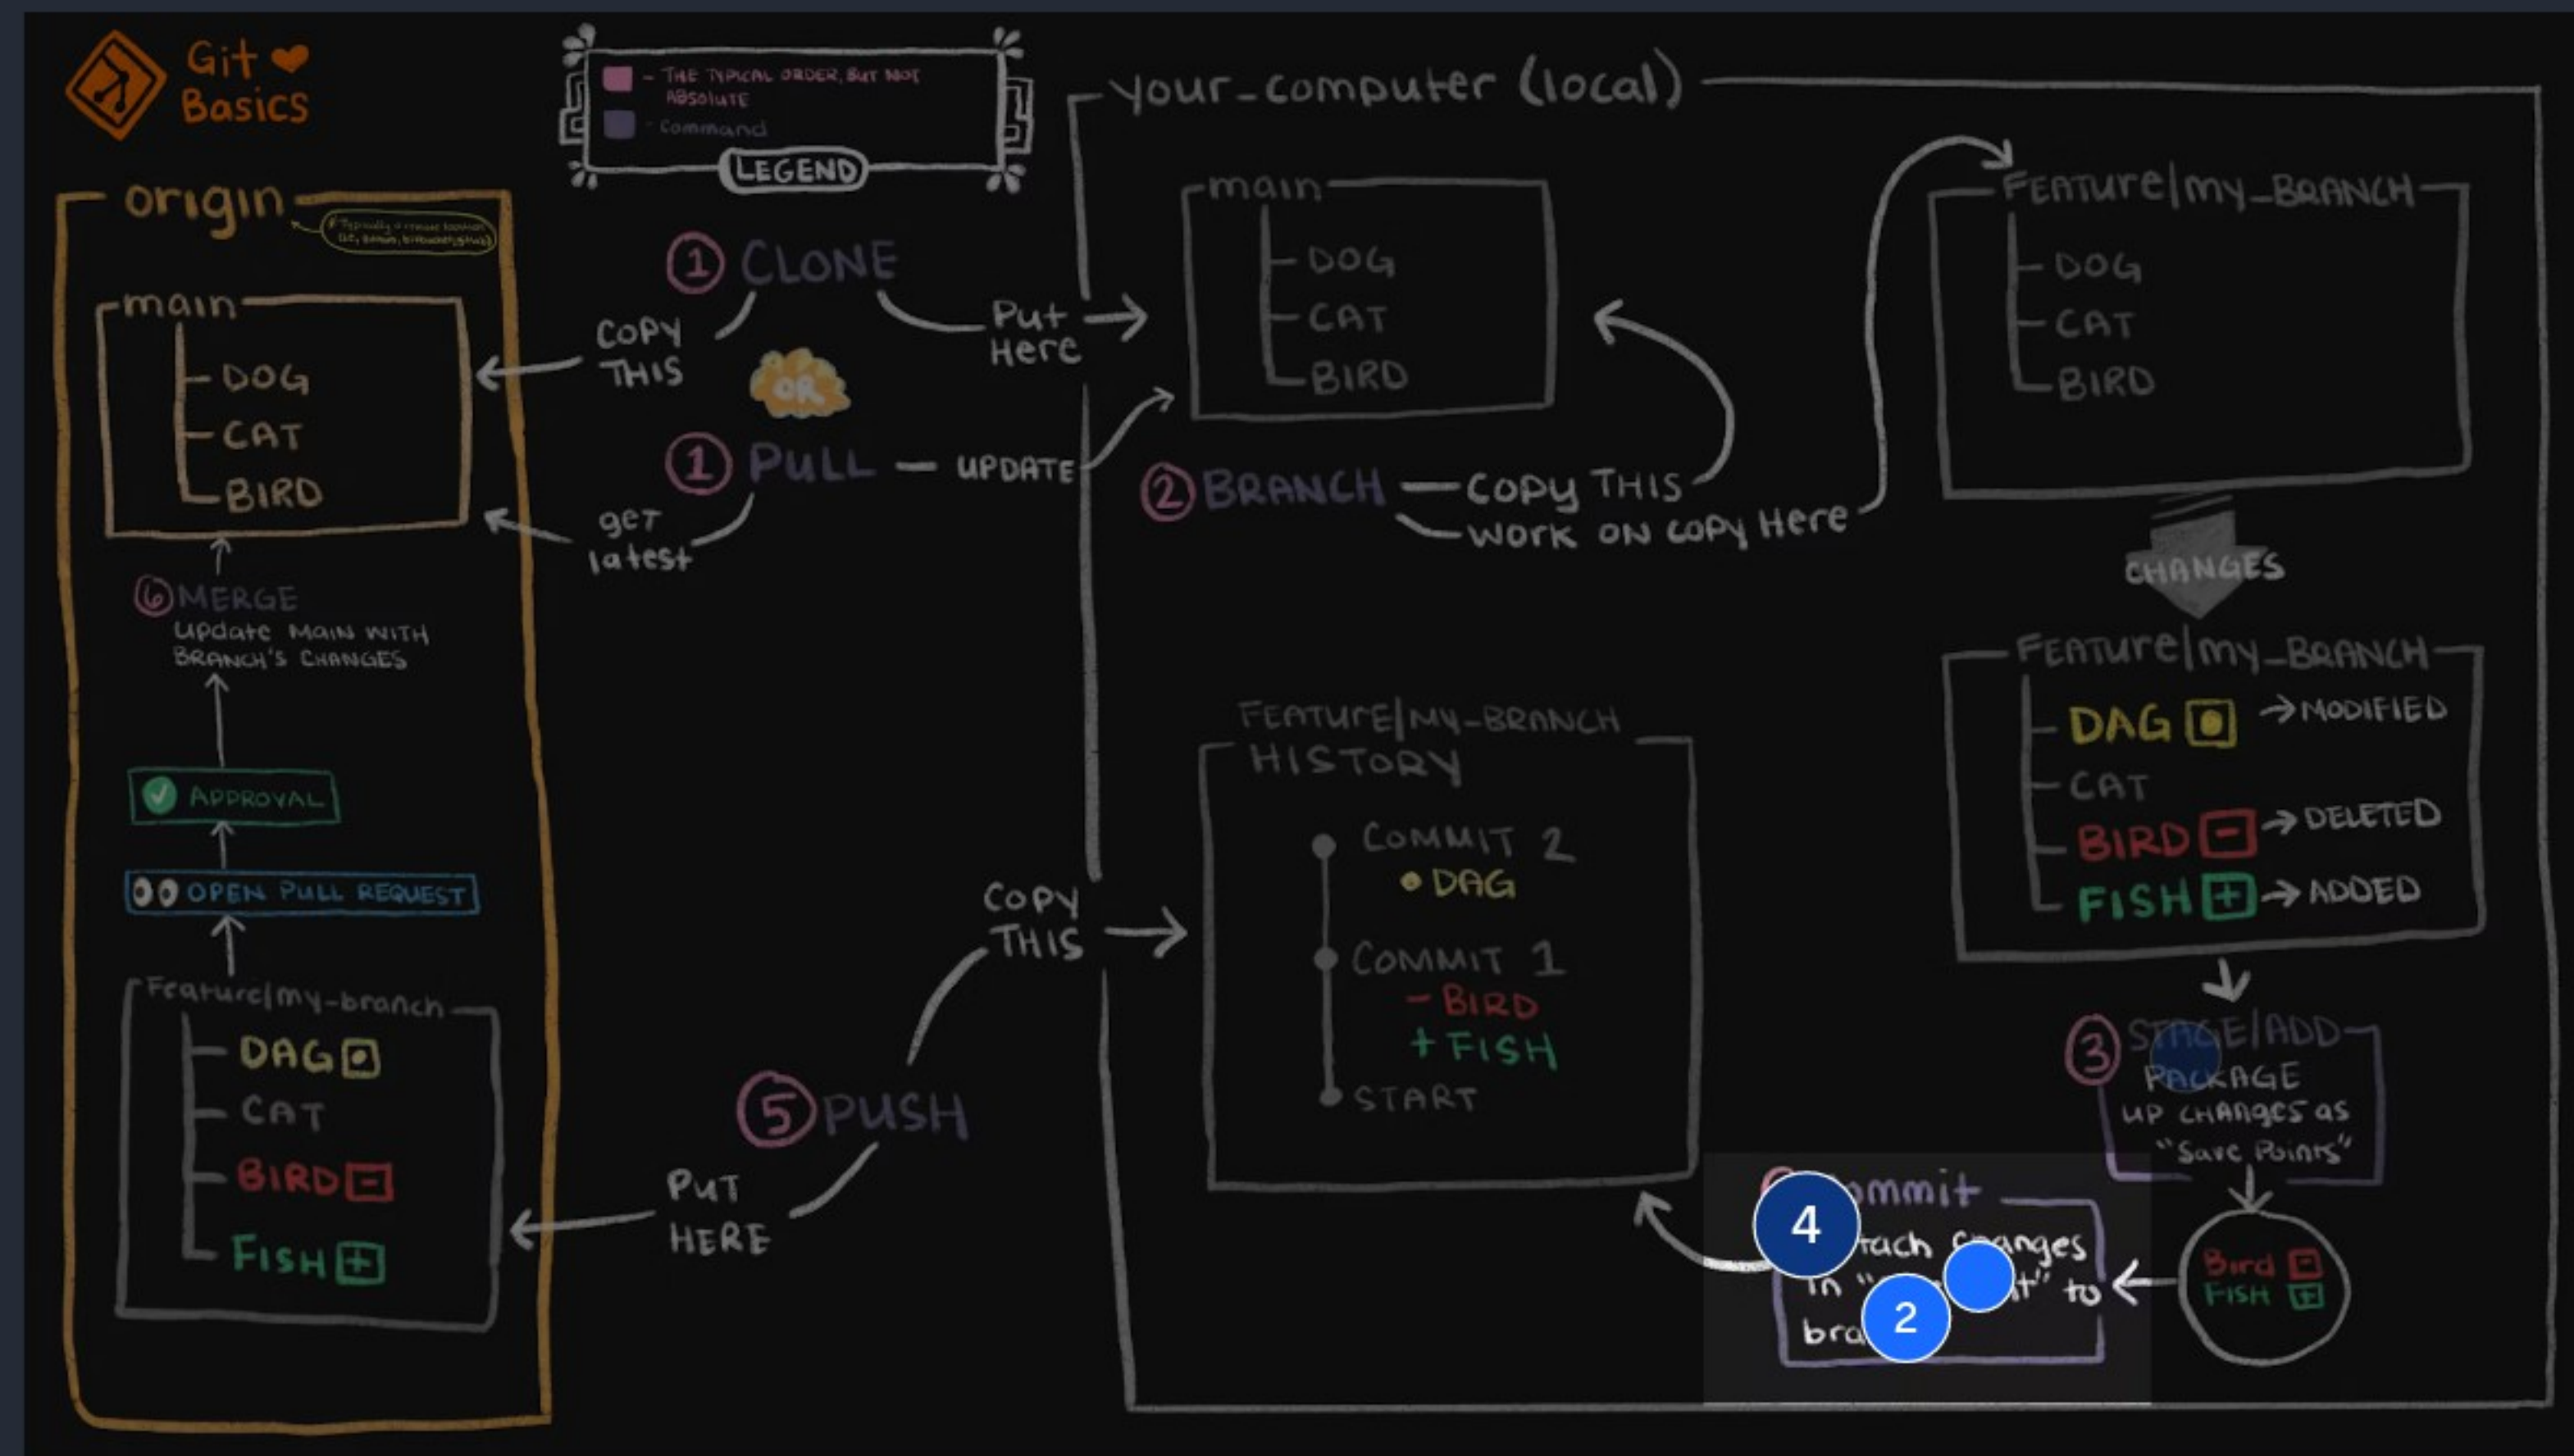 Git
Basics
- THE TYPICAL ORDER, BUT NOT
ABSOLUTE
- Command
LEGEND
origin
* Typically a remote location
main
DOG
CAT
BIRD
6 MERGE
update MAIN WITH
BRANCH'S CHANGES
APPROVAL
OPEN PULL REQUEST
Feature/my-branch
DAG
CAT
BIRD -
FISH +
1 CLONE
COPY
THIS
Put
Here
OR
1 PULL — UPDATE
get
latest
your_computer (local)
main
DOG
CAT
BIRD
2 BRANCH — COPY THIS
WORK ON COPY Here
FEATURE/my_BRANCH
DOG
CAT
BIRD
CHANGES
FEATURE/my_BRANCH
DAG → MODIFIED
CAT
BIRD - → DELETED
FISH + → ADDED
3 STAGE/ADD
PACKAGE
UP CHANGES as
"Save Points"
Bird -
FISH +
4 ommit
tach changes
in to
2
FEATURE/MY-BRANCH
HISTORY
COMMIT 2
• DAG
COMMIT 1
- BIRD
+ FISH
START
COPY
THIS
5 PUSH
PUT
HERE